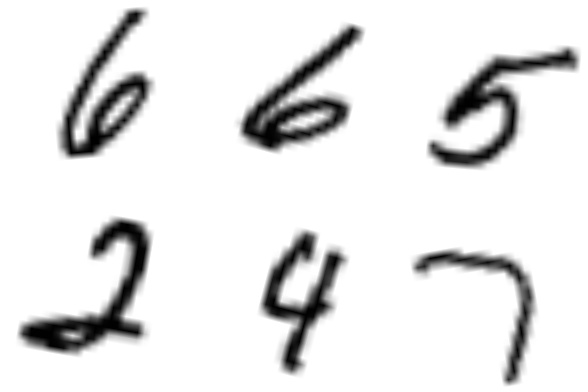 6 6 5
2 4 7